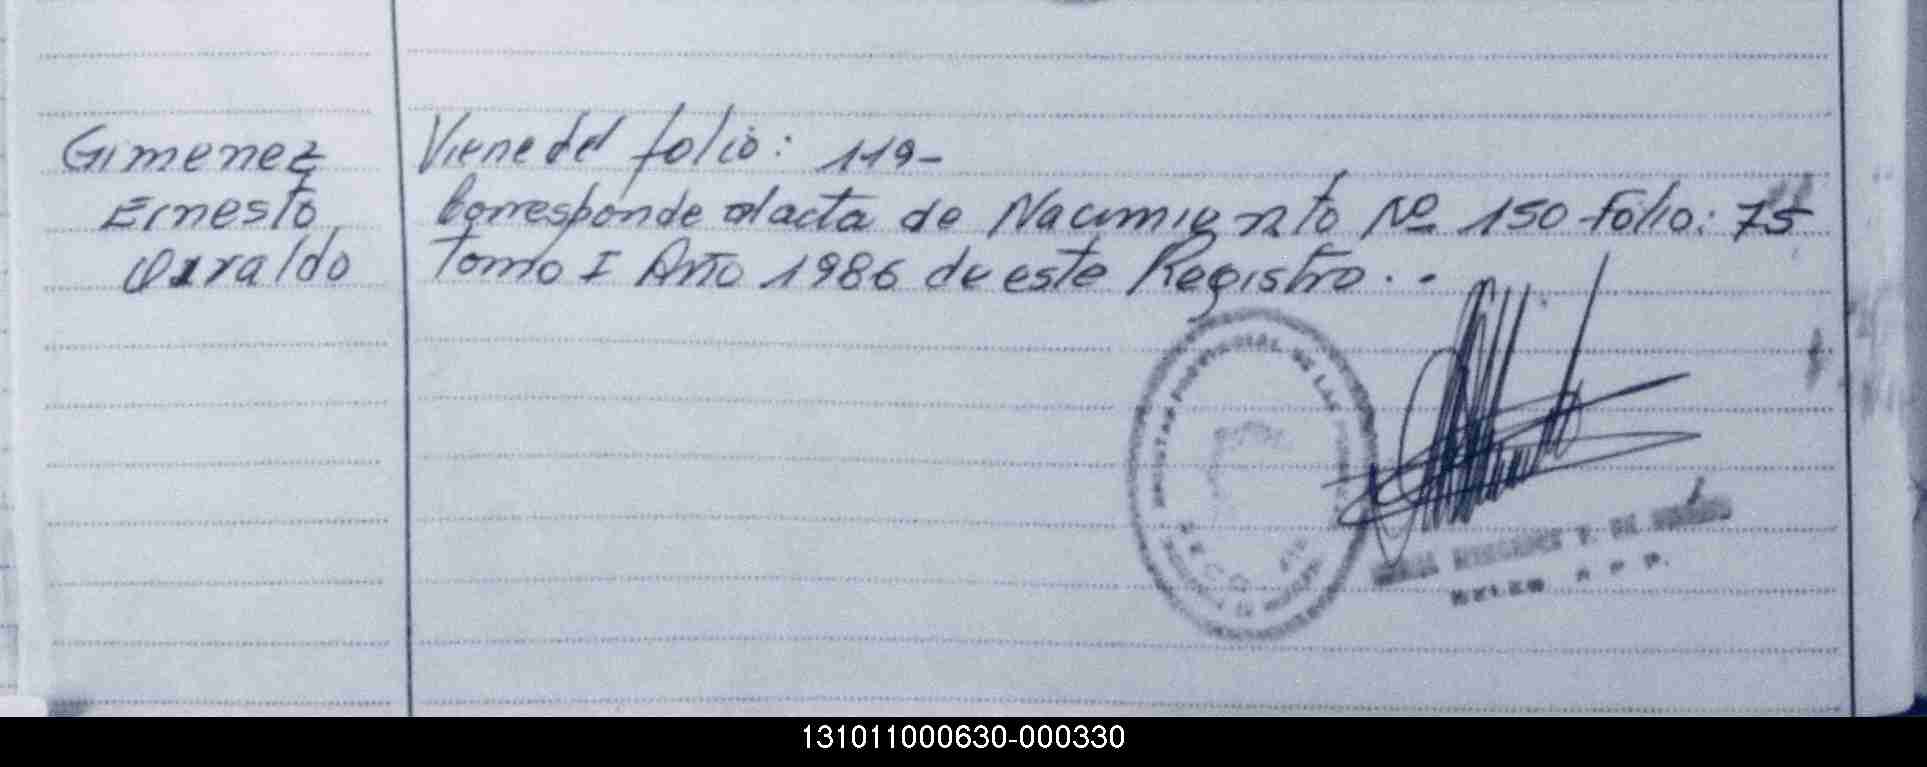 Gimenez
Ernesto
Osvaldo
Viene del folio: 119-
Corresponde al acta de Nacimiento Nº 150 folio: 75
Tomo I Año 1986 de este Registro..
PROVINCIAL DE LAS
A P P.
131011000630-000330